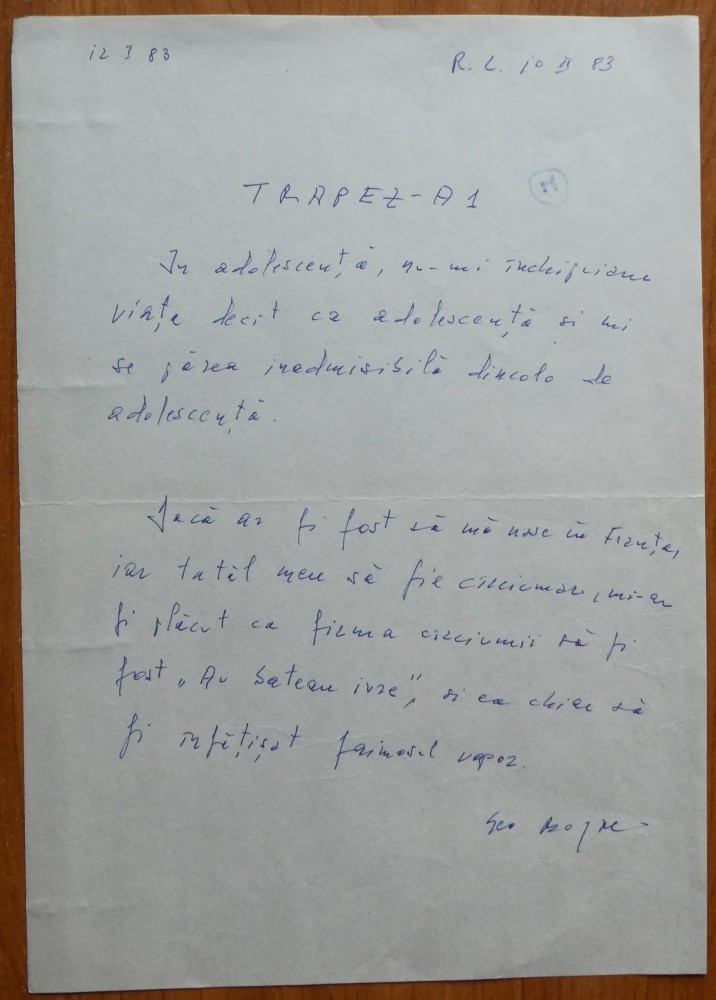 12 I 83
R. L. 10 II 83
TRAPEZ-A1
In adolescență, nu-mi închipuiam
viața decît ca adolescență si mi
se părea inadmisibilă dincolo de
adolescență.
Dacă ar fi fost să mă nasc în Franța,
iar tatăl meu să fie cîrciumar, mi-ar
fi plăcut ca firma cîrciumii să fi
fost „Au bateau ivre”, si ea chiar să
fi înfățișat faimosul vapor.
Geo Bogza